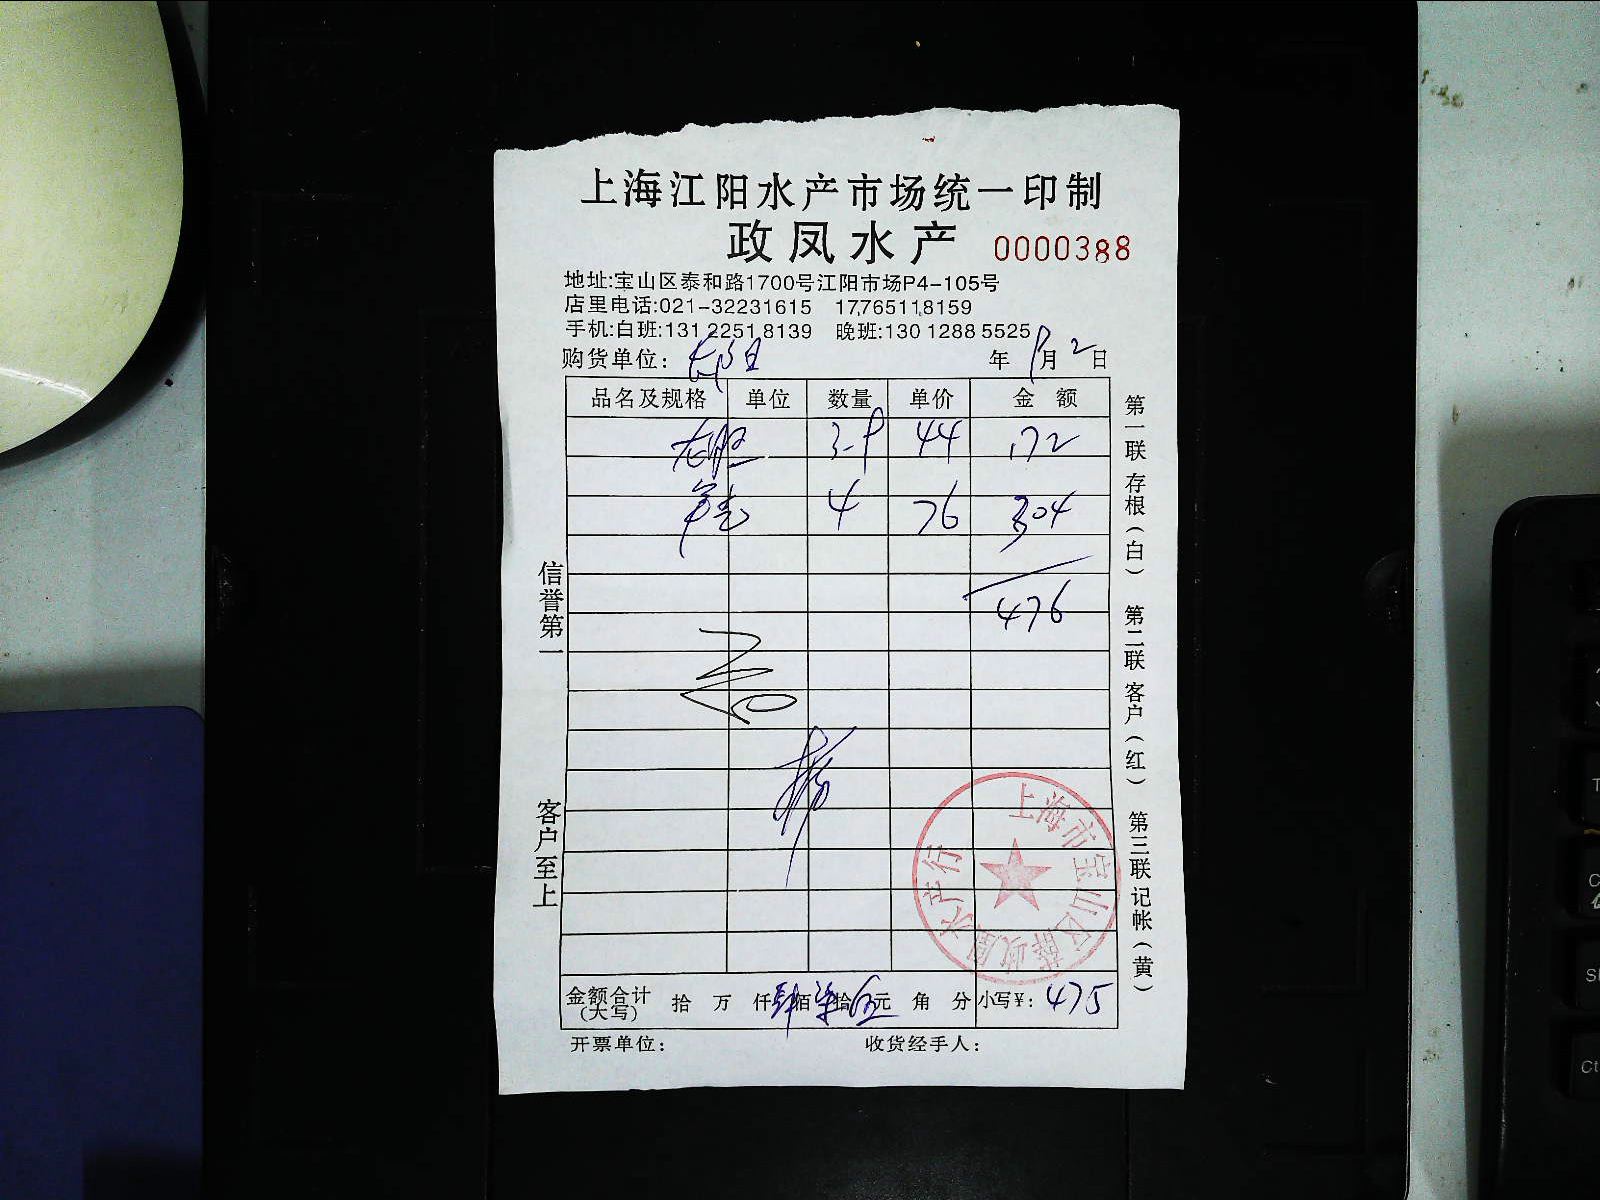 上海江阳水产市场统一印制
政凤水产 0000388
地址:宝山区泰和路1700号江阳市场P4-105号
店里电话:021-32231615 17765118159
手机:白班:131 2251 8139 晚班:130 1288 5525
购货单位: 年 月 2 日
品名及规格 单位 数量 单价 金额
44 172
4 76 304
476
信誉第一
客户至上
第一联存根(白) 第二联客户(红) 第三联记帐(黄)
上海市宝山区薛政凤水产行
金额合计(大写) 拾 万 仟肆佰柒拾伍元 角 分 小写¥: 475
开票单位: 收货经手人: